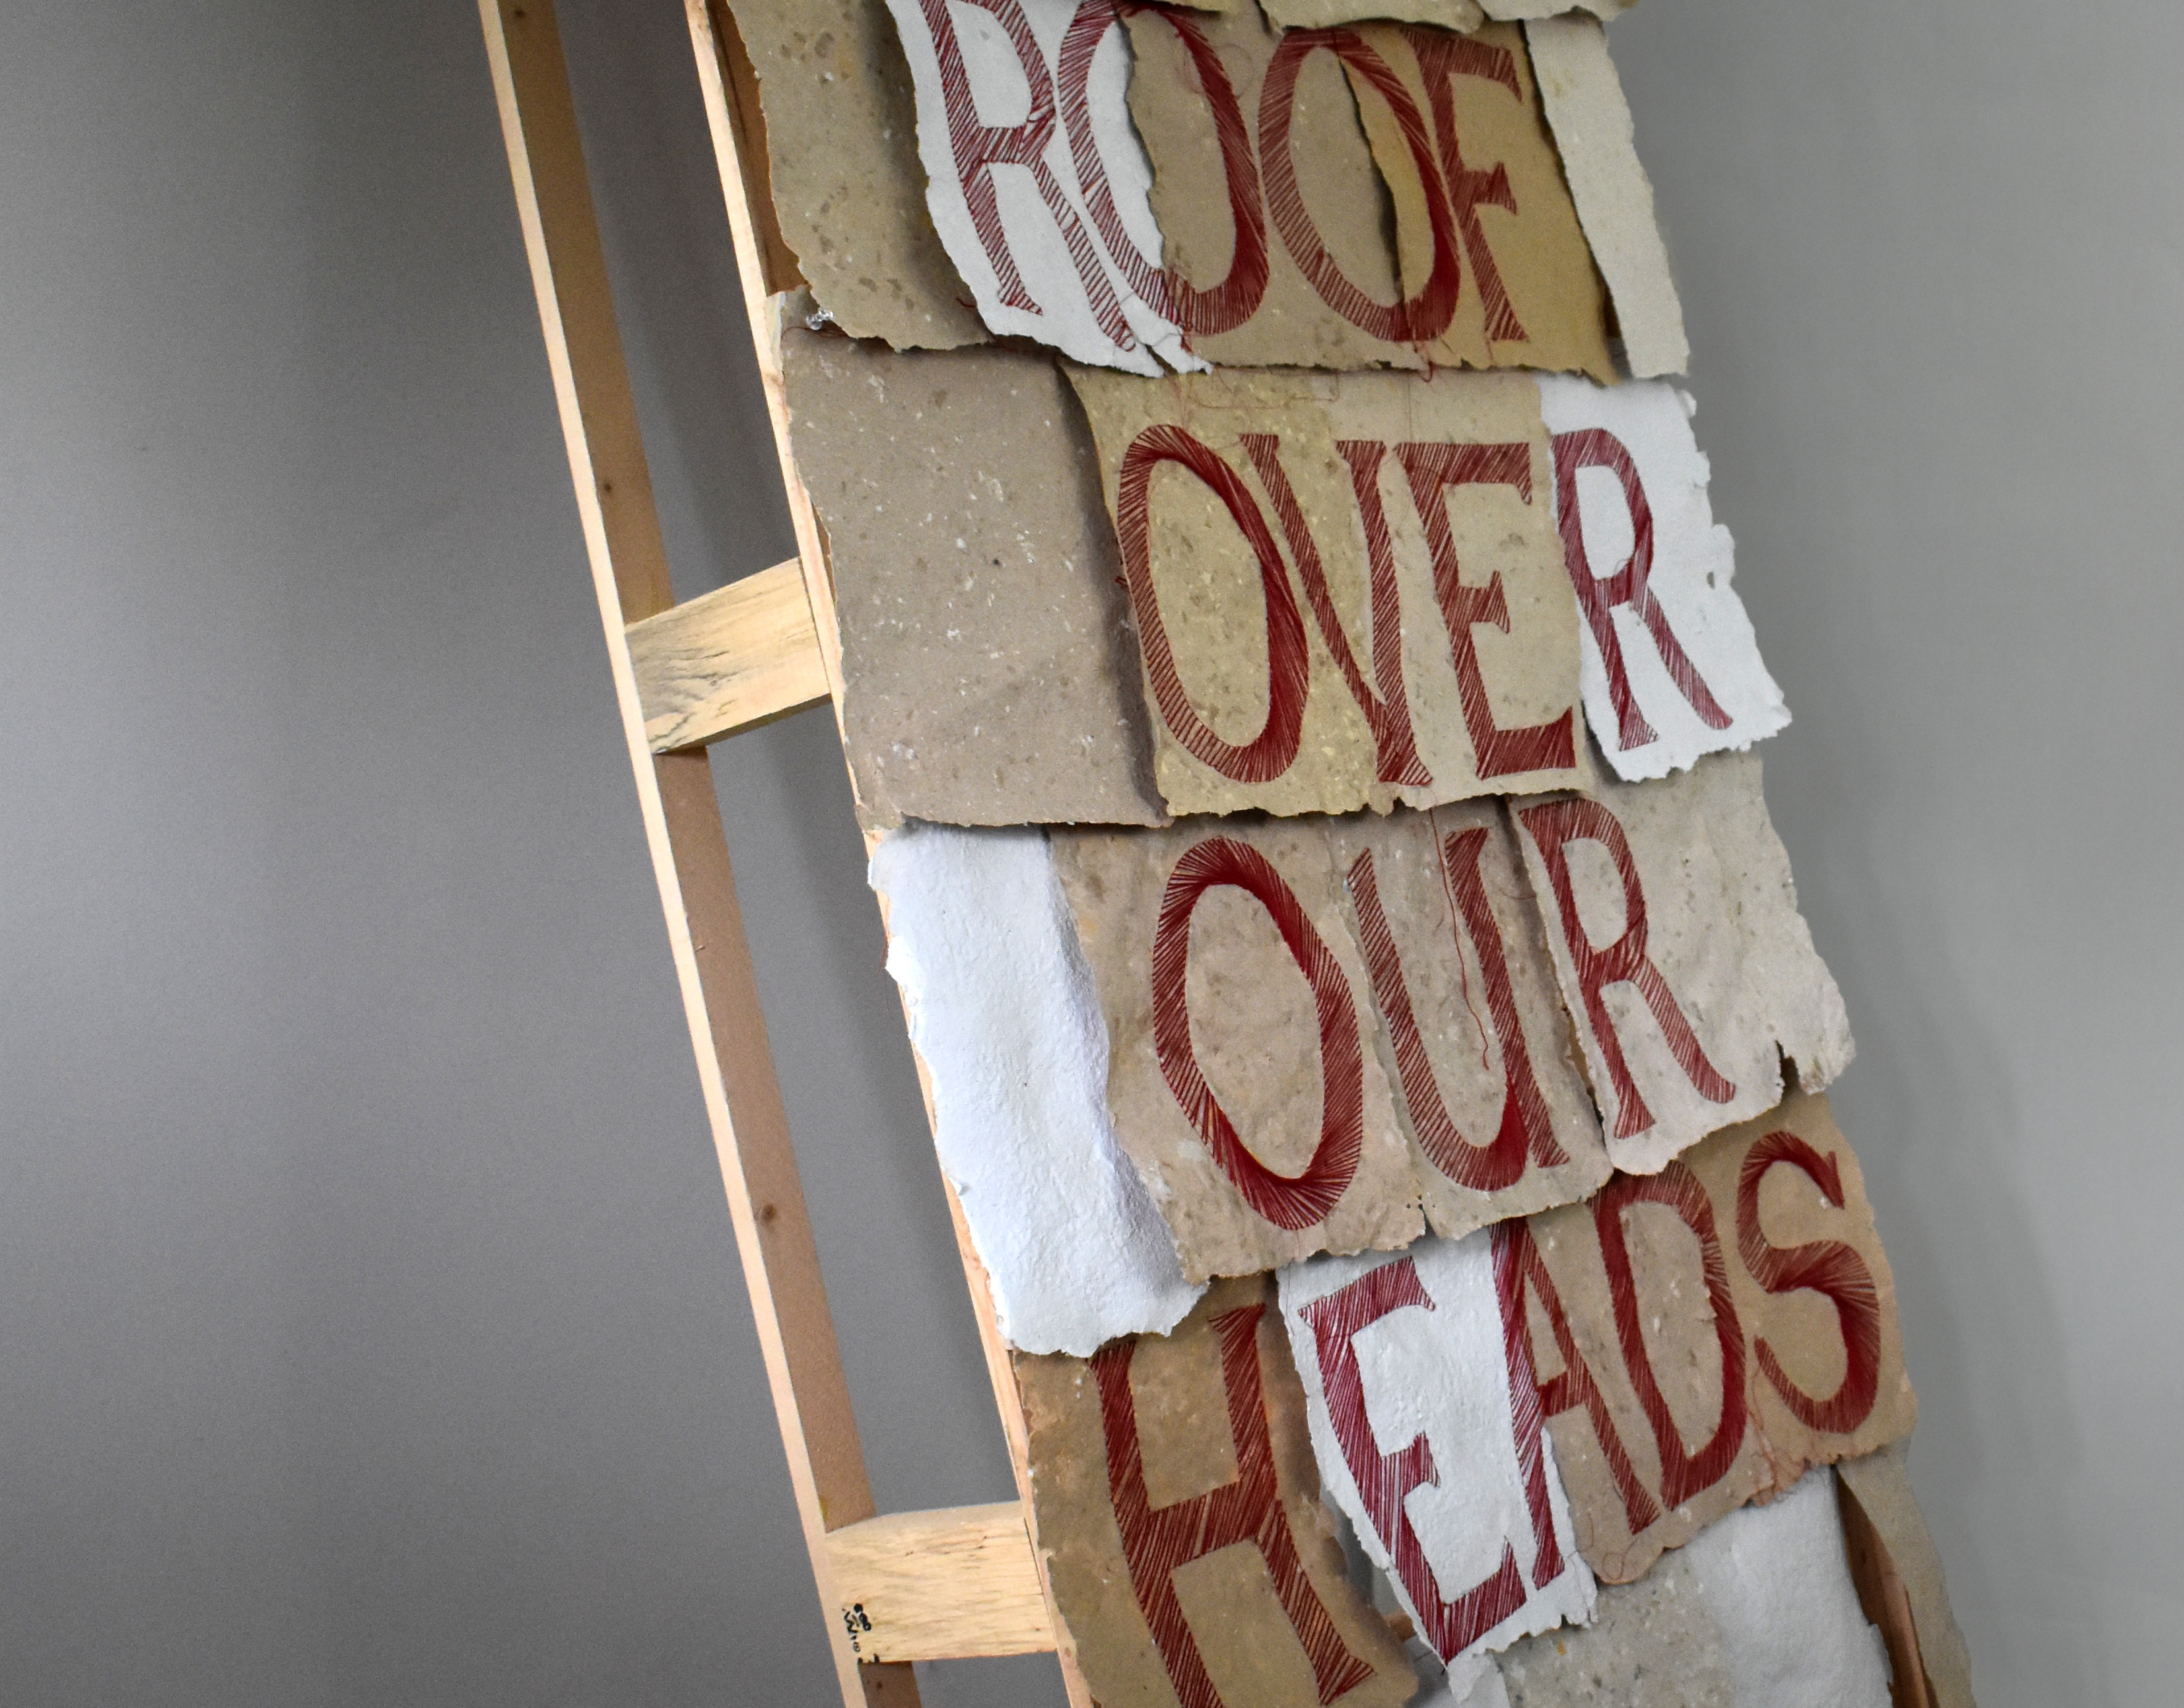 ROOF
OVER
OUR
HEADS